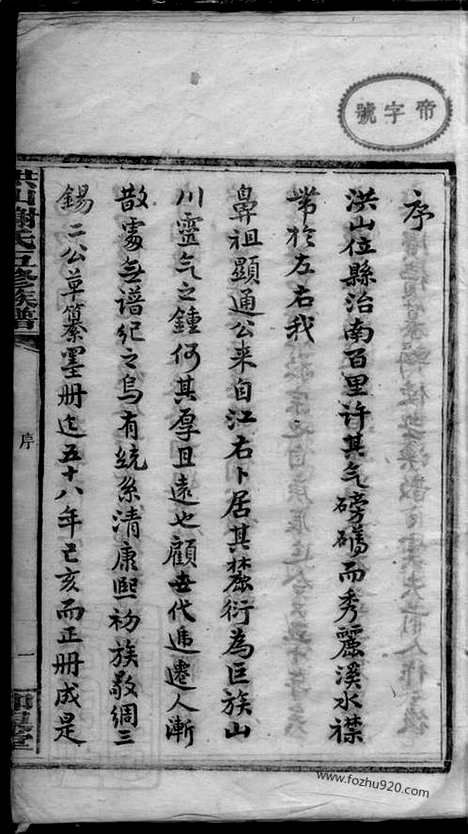 帝字號
序
洪山位縣治南百里許其气磅礴而秀麗溪水襟
帶於左右我
鼻祖顯通公来自江右卜居其麓衍為巨族山
川靈气之鍾何其厚且遠也顧世代遞遷人漸
散處無譜紀之烏有統系清康熙初族敬綢三
錫二公草纂墨册迄五十八年己亥而正册成是
洪山謝氏五修族譜
序
一
www.fozhu920.com